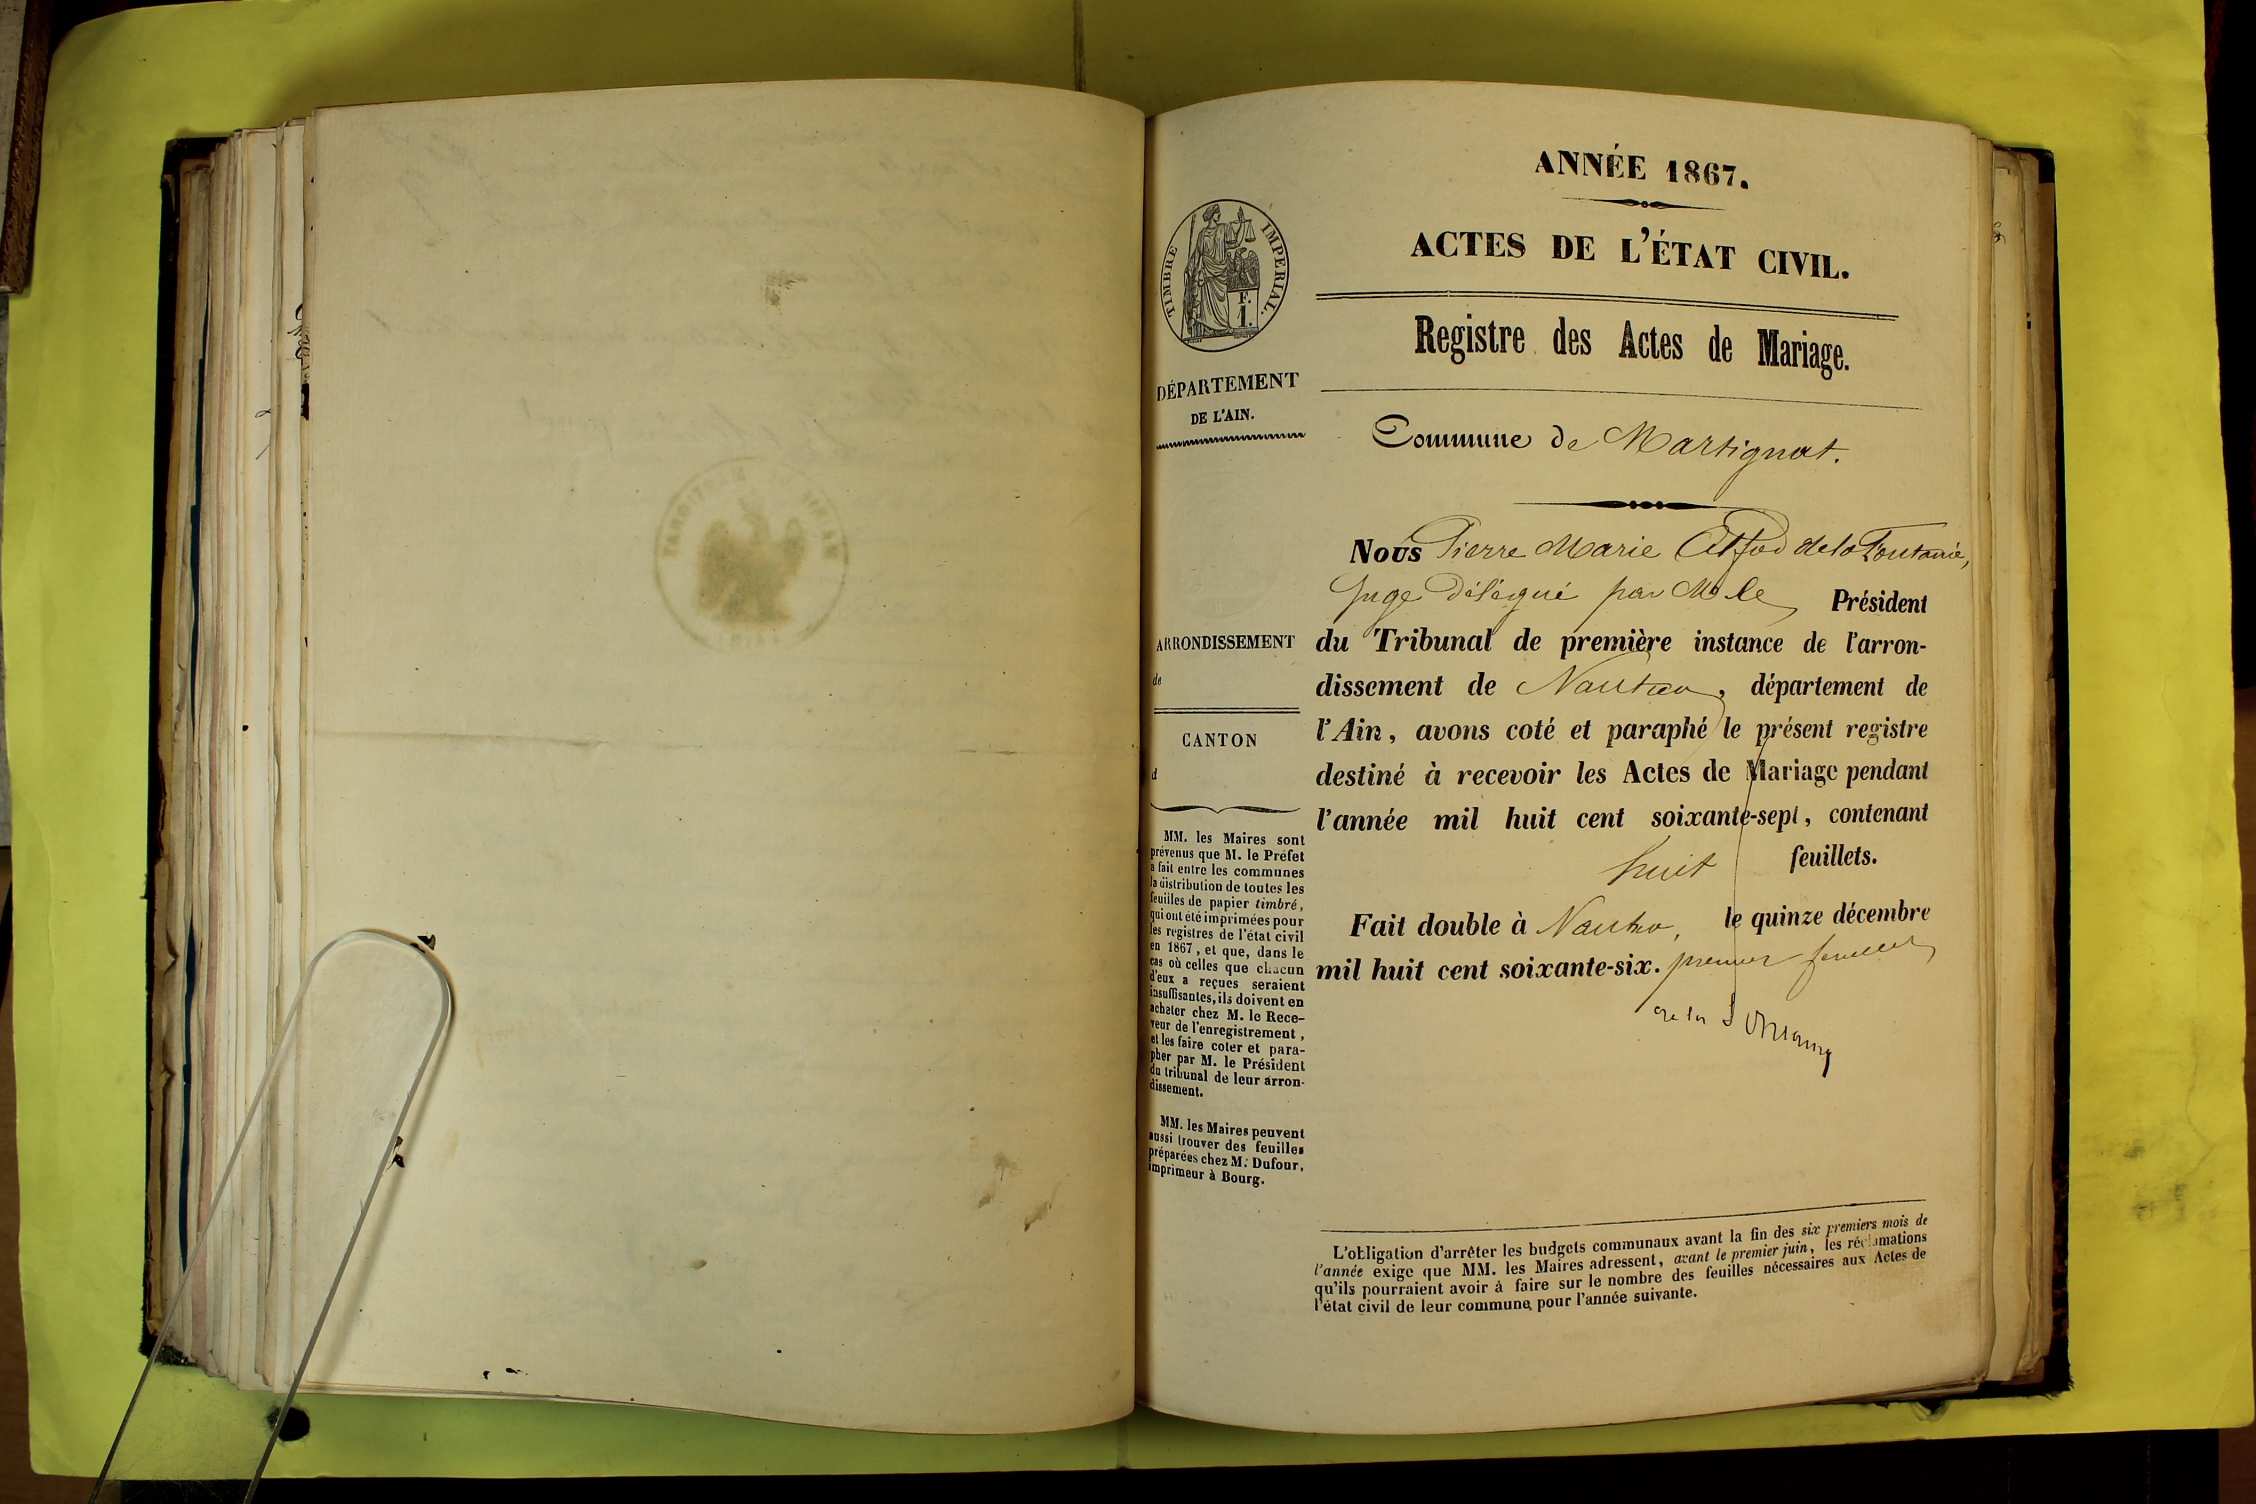 ANNÉE 1867.
ACTES DE L'ÉTAT CIVIL.
Registre des Actes de Mariage.
TIMBRE IMPERIAL.
F.
1.
DÉPARTEMENT
DE L'AIN.
ARRONDISSEMENT
de
CANTON
d
MM. les Maires sont
prévenus que M. le Préfet
a fait entre les communes
la distribution de toutes les
feuilles de papier timbré,
qui ont été imprimées pour
les registres de l'état civil
en 1867, et que, dans le
cas où celles que chacun
d'eux a reçues seraient
insuffisantes, ils doivent en
acheter chez M. le Rece-
veur de l'enregistrement,
et les faire coter et para-
pher par M. le Président
du tribunal de leur arron-
dissement.
MM. les Maires peuvent
aussi trouver des feuilles
préparées chez M. Dufour,
imprimeur à Bourg.
Commune de Martignat.
Nous Pierre Marie de la
Juge délégué par Mr le Président
du Tribunal de première instance de l'arron-
dissement de Nantua, département de
l'Ain, avons coté et paraphé le présent registre
destiné à recevoir les Actes de Mariage pendant
l'année mil huit cent soixante-sept, contenant
huit feuillets.
Fait double à Nantua, le quinze décembre
mil huit cent soixante-six. premier feuillet
L'obligation d'arrêter les budgets communaux avant la fin des six premiers mois de
l'année exige que MM. les Maires adressent, avant le premier juin, les réclamations
qu'ils pourraient avoir à faire sur le nombre des feuilles nécessaires aux Actes de
l'état civil de leur commune pour l'année suivante.